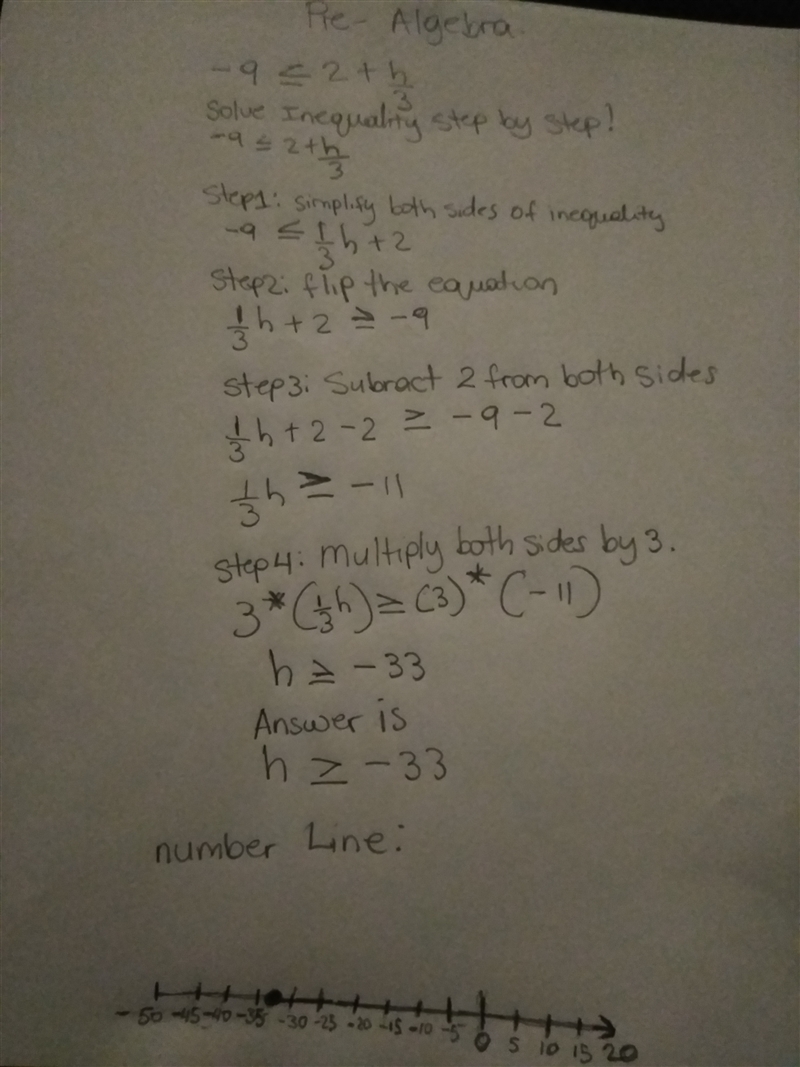 Pre-Algebra.
-9 ≤ 2 + h/3
Solve Inequality step by step!
-9 ≤ 2 + h/3
Step1: simplify both sides of inequality
-9 ≤ 1/3 h + 2
Step2: flip the equation
1/3 h + 2 ≥ -9
Step3: Subract 2 from both sides
1/3 h + 2 - 2 ≥ -9 - 2
1/3 h ≥ -11
Step4: Multiply both sides by 3.
3 * (1/3 h) ≥ (3) * (-11)
h ≥ -33
Answer is
h ≥ -33
number Line:
-50 -45 -40 -35 -30 -25 -20 -15 -10 -5 0 5 10 15 20